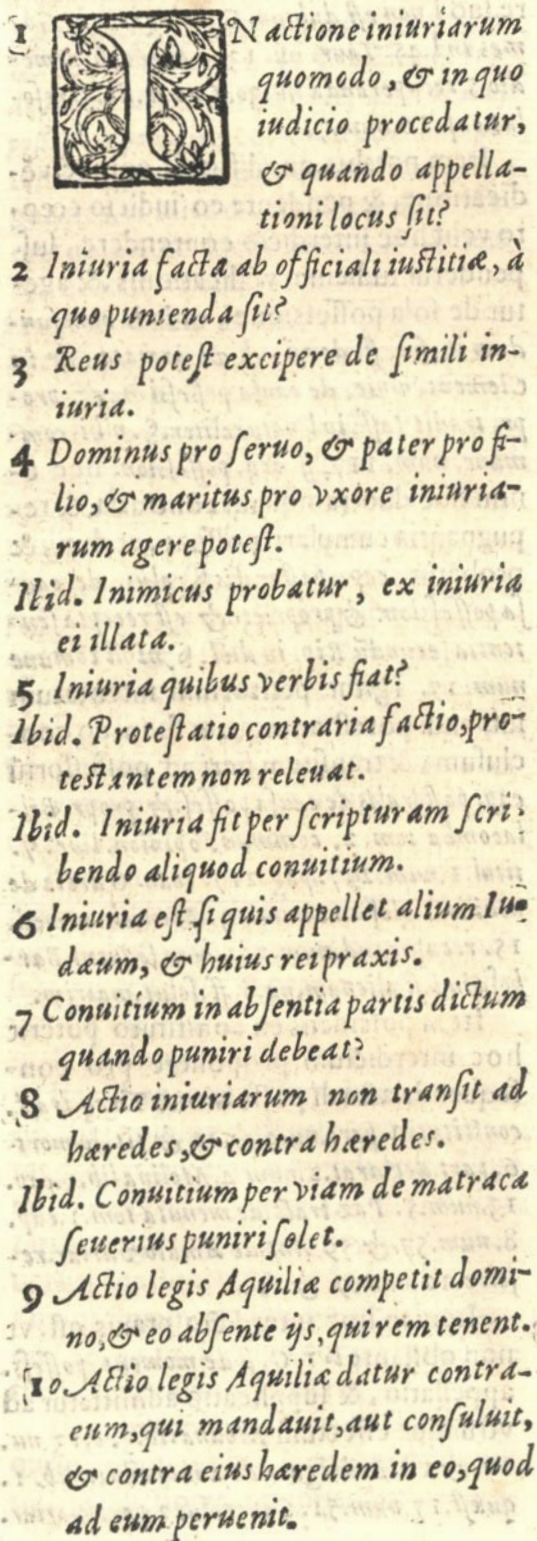 1 IN actione iniuriarum
quomodo, & in quo
iudicio procedatur,
& quando appella-
tioni locus sit?
2 Iniuria facta ab officiali iustitiæ, à
quo punienda sit?
3 Reus potest excipere de simili in-
iuria.
4 Dominus pro seruo, & pater pro fi-
lio, & maritus pro vxore iniuria-
rum agere potest.
Ibid. Inimicus probatur, ex iniuria
ei illata.
5 Iniuria quibus verbis fiat?
Ibid. Protestatio contraria factio, pro-
testantem non releuat.
Ibid. Iniuria fit per scripturam scri-
bendo aliquod conuitium.
6 Iniuria est si quis appellet alium Iu-
dæum, & huius rei praxis.
7 Conuitium in absentia partis dictum
quando puniri debeat?
8 Actio iniuriarum non transit ad
hæredes, & contra hæredes.
Ibid. Conuitium per viam de matraca
seuerius puniri solet.
9 Actio legis Aquiliæ competit domi-
no, & eo absente ijs, qui rem tenent.
10 Actio legis Aquiliæ datur contra-
eum, qui mandauit, aut consuluit,
& contra eius hæredem in eo, quod
ad eum peruenit.